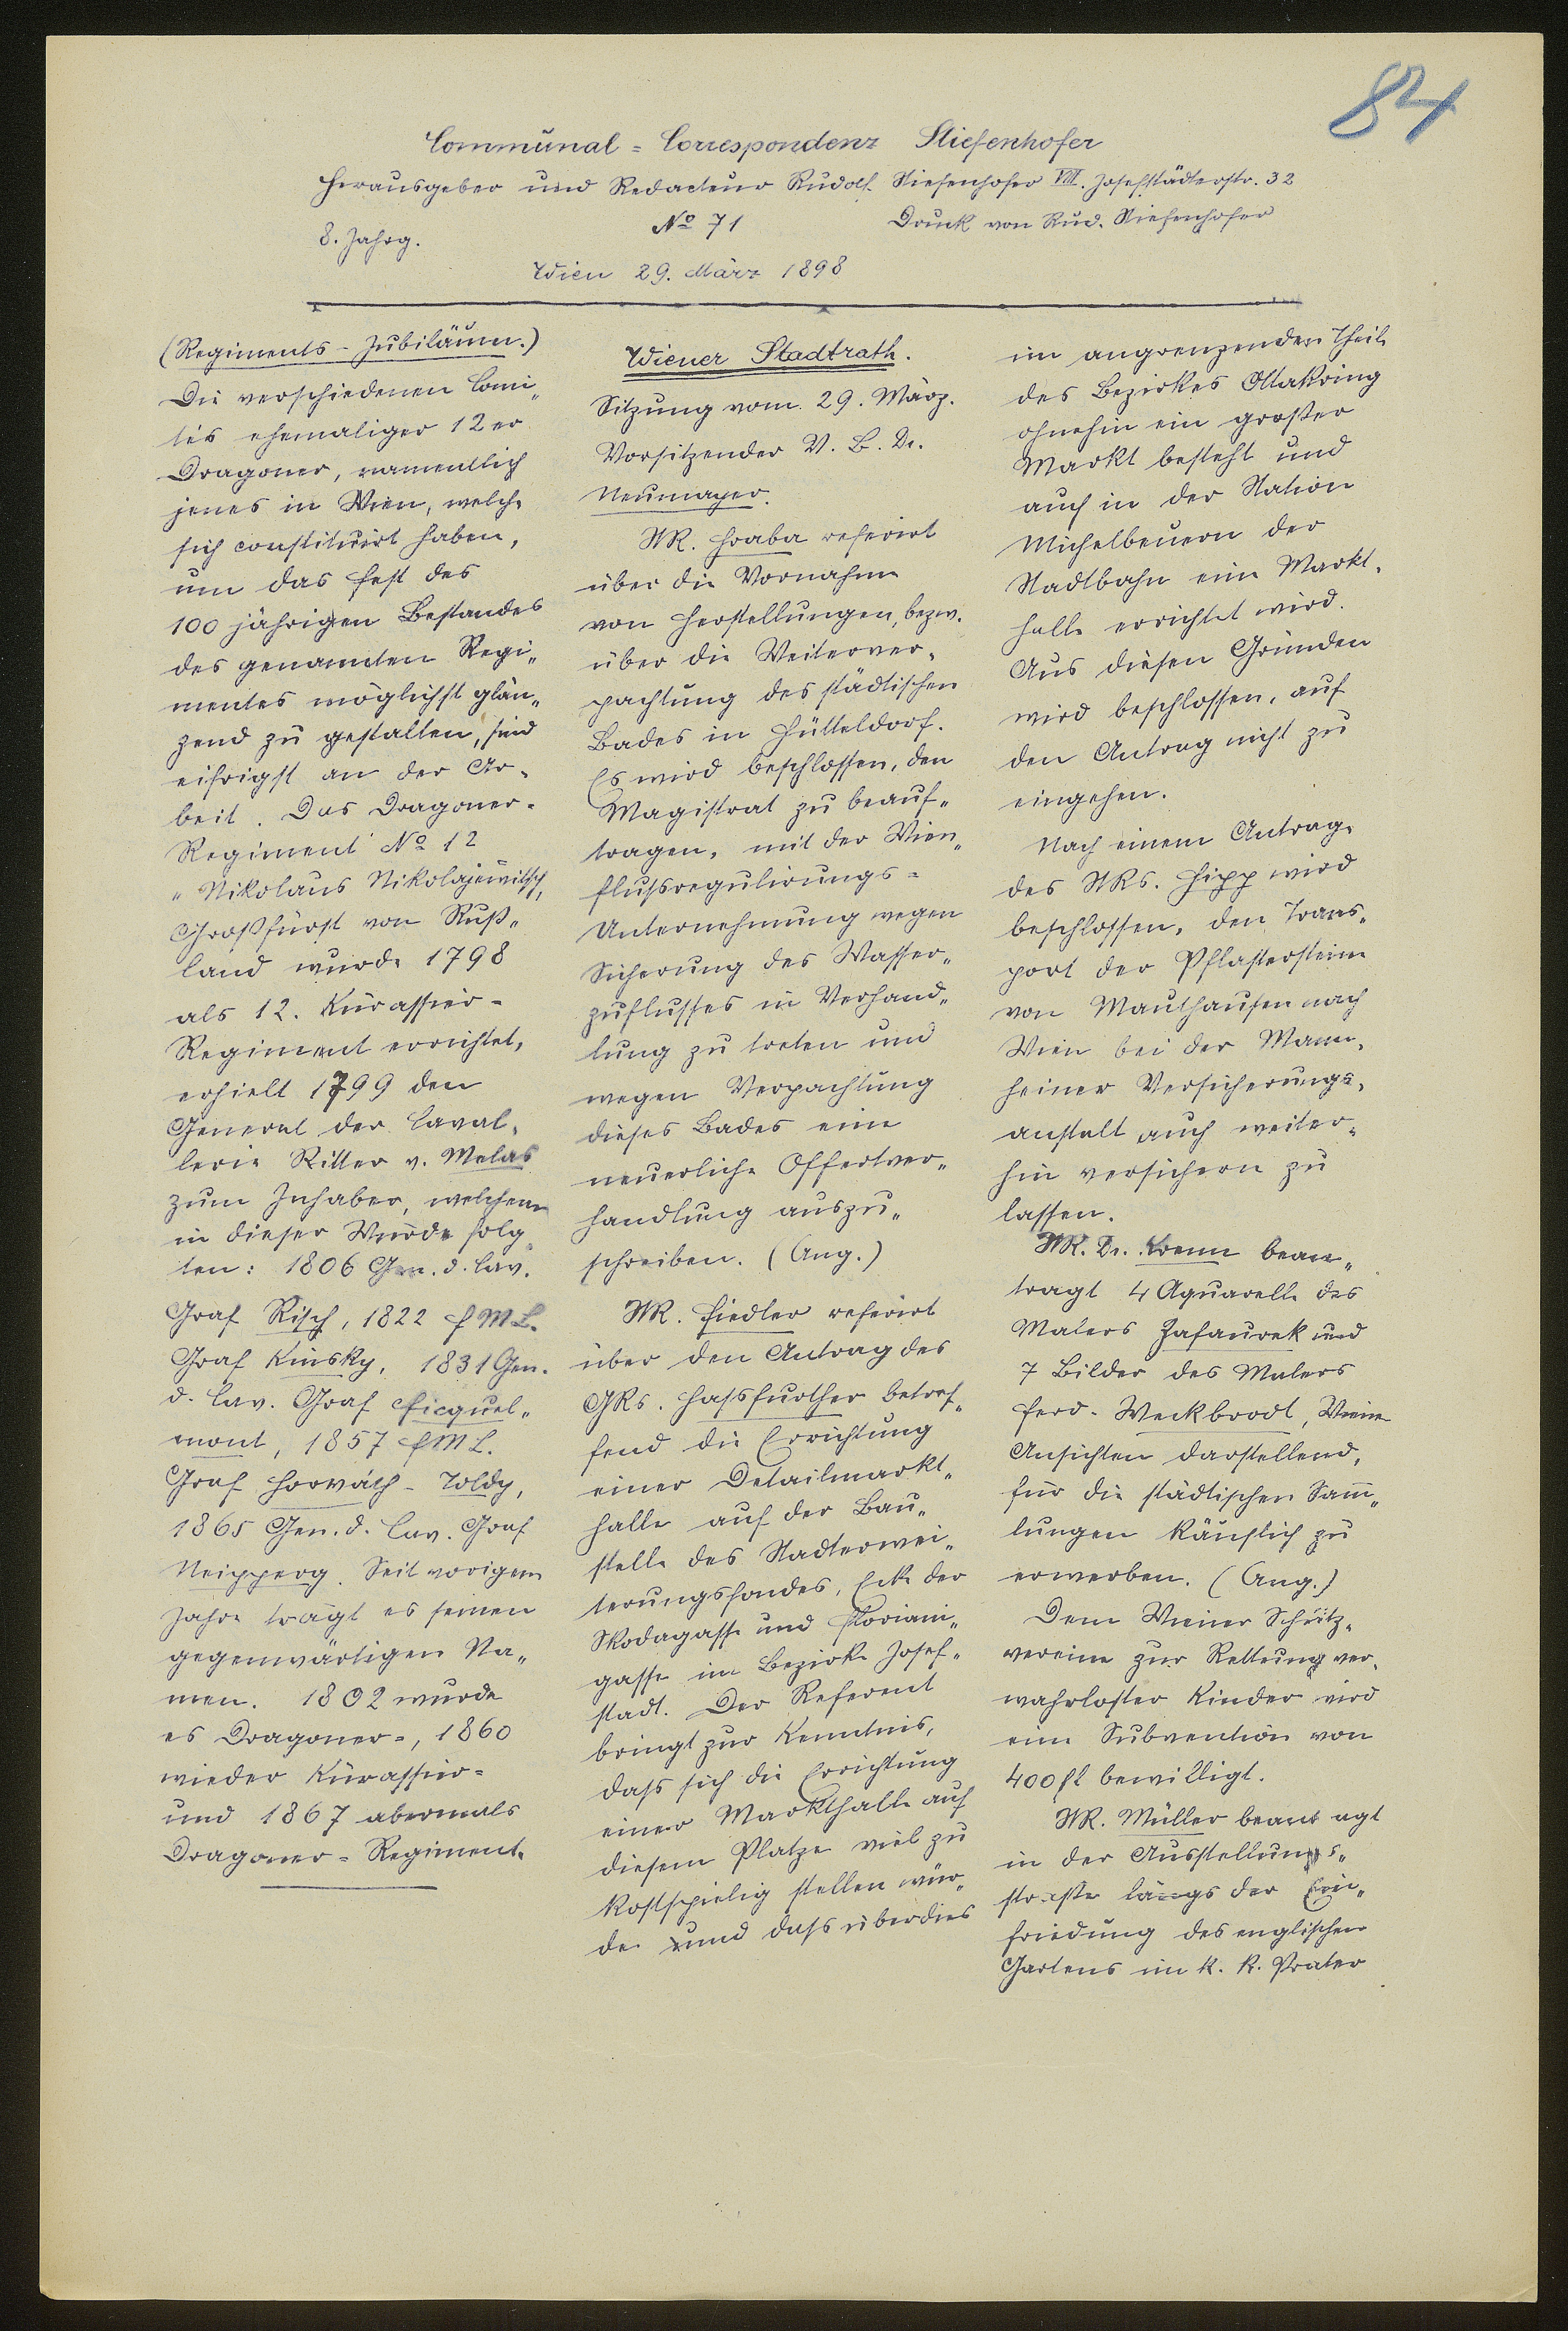 84
Communal-Correspondenz Stiefenhofer
Herausgeber und Redacteur Rudolf Stiefenhofer VIII. Josefstädterstr. 32
8. Jahrg. No 71 Druck von Rud. Stiefenhofer
Wien 29. März 1898
(Regiments-Jubiläum.)
Die verschiedenen Comi„
tés ehemaliger 12er
Dragoner, namentlich
jenes in Wien, welche
sich constituirt haben,
um das Fest des
100 jährigen Bestandes
des genannten Regi„
mentes möglichst glän„
zend zu gestalten, sind
eifrigst an der Ar-
beit. Das Dragoner-
Regiment No 12
„Nikolaus Nikolajewitsch,
Großfürst von Ruß„
land wurde 1798
als 12. Kürassier-
Regiment errichtet,
erhielt 1799 den
General der Caval-
lerie Ritter v. Melas
zum Inhaber, welchem
in dieser Würde folg„
ten: 1806 Gen. d. Cav.
Graf Risch, 1822 FML.
Graf Kinsky, 1831 Gen.
d. Cav. Graf Ficquel„
mont, 1857 FML.
Graf Horváth-Toldy,
1865 Gen. d. Cav. Graf
Neipperg. Seit vorigem
Jahre trägt es seinen
gegenwärtigen Na„
men. 1802 wurde
es Dragoner-, 1860
wieder Kürassier-
und 1867 abermals
Dragoner-Regiment.
Wiener Stadtrath.
Sitzung vom 29. März.
Vorsitzender V. B. Dr.
Neumayer.
StR. Hraba referirt
über die Vornahme
von Herstellungen, bezw.
über die Weiterver-
pachtung des städtischen
Bades in Hütteldorf.
Es wird beschlossen, den
Magistrat zu beauf„
tragen, mit der Wien„
flußregulirungs-
Unternehmung wegen
Sicherung des Wasser„
zuflusses in Verhand„
lung zu treten und
wegen Verpachtung
dieses Bades eine
neuerliche Offertver„
handlung auszu„
schreiben. (Ang.)
StR. Fiedler referirt
über den Antrag des
GRs. Hassfurther betref„
fend die Errichtung
einer Detailmarkt„
halle auf der Bau„
stelle des Stadterwei„
terungsfondes, Ecke der
Skodagasse und Floriani„
gasse im Bezirke Josef„
stadt. Der Referent
bringt zur Kenntnis,
dass sich die Errichtung
einer Markthalle auf
diesem Platze viel zu
kostspielig stellen wür„
de und dass überdies
im angrenzenden Theile
des Bezirkes Ottakring
ohnehin ein großer
Markt besteht und
auch in der Station
Michelbeuern der
Stadtbahn eine Markt-
halle errichtet wird.
Aus diesen Gründen
wird beschlossen, auf
den Antrag nicht zu
eingehen.
Nach einem Antrage
des StRs. Hipp wird
beschlossen, den Trans-
port der Pflastersteine
von Mauthausen nach
Wien bei der Mann-
heimer Versicherungs-
anstalt auch weiter-
hin versichern zu
lassen.
StR. Dr. Krenn bean„
tragt 4 Aquarelle des
Malers Zafaurek und
7 Bilder des Malers
Ferd. Weckbrodt, Wiener
Ansichten darstellend,
für die städtischen Sam̅„
lungen käuflich zu
erwerben. (Ang.)
Dem Wiener Schutz-
vereine zur Rettung ver-
wahrloster Kinder wird
eine Subvention von
400 fl bewilligt.
StR. Müller beant agt
in der Ausstellungs„
straße längs der Ein„
friedung des englischen
Gartens im k. k. Prater